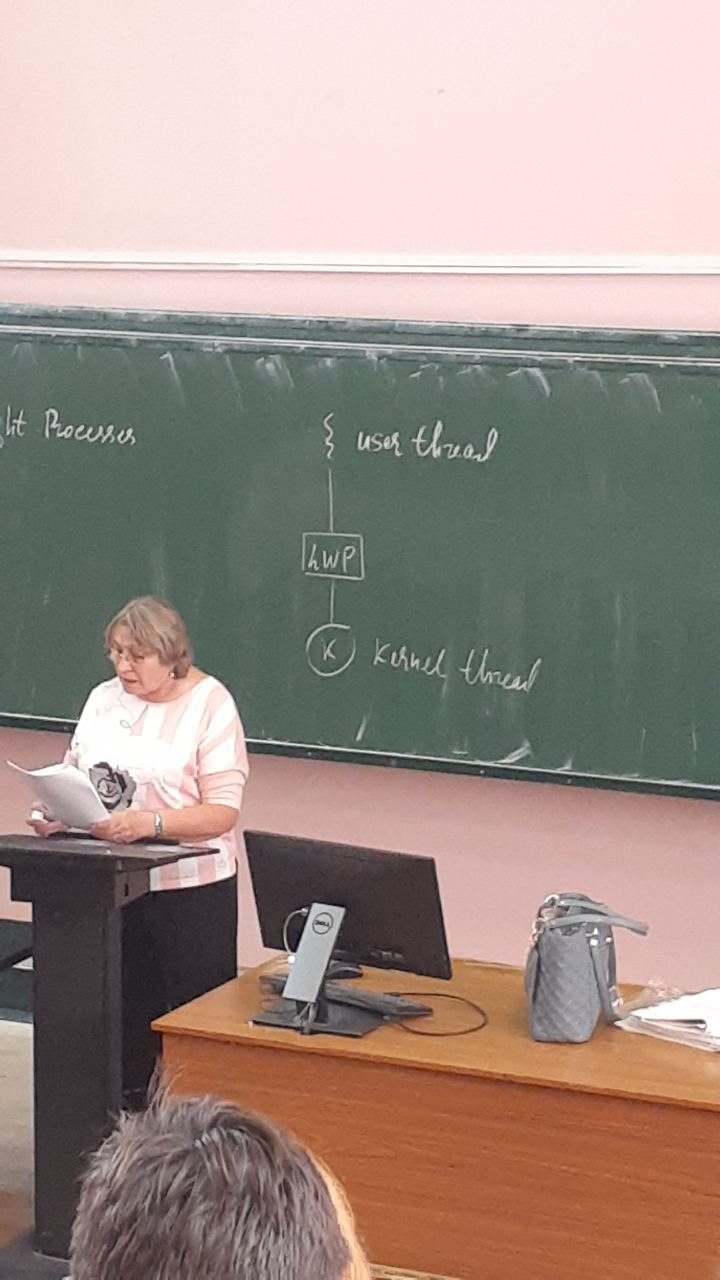 ght Processes
user thread
LWP
K Kernel thread
DELL